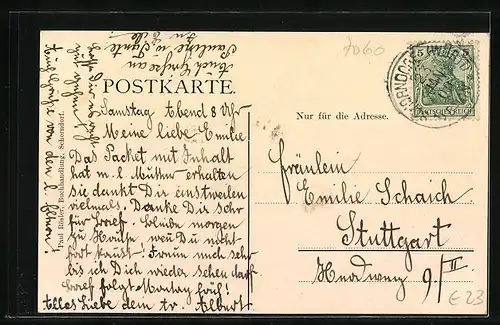 7060
auch Grüße an
Pauline u. Tante
in Eile.
POSTKARTE.
Nur für die Adresse.
SCHORNDORF
5 5
DEUTSCHES REICH
Samstag Abend 8 Uhr
Meine liebe Emilie
Das Packet mit Inhalt
hat m. l. Mutter erhalten
sie dankt Dir einstweilen
vielmals. Danke Dir sehr
für Brief. Bleibe morgen
zu Hause, weu Du nicht
fort kaust! Freue mich sehr
bis ich Dich wieder sehen darf
Brief folgt Montag früh!
Alles Liebe dein tr. Albert
Fräulein
Emilie Schaich
Stuttgart
Heudweg 9/II
Paul Rösler, Buchhandlung, Schorndorf.
€ 23